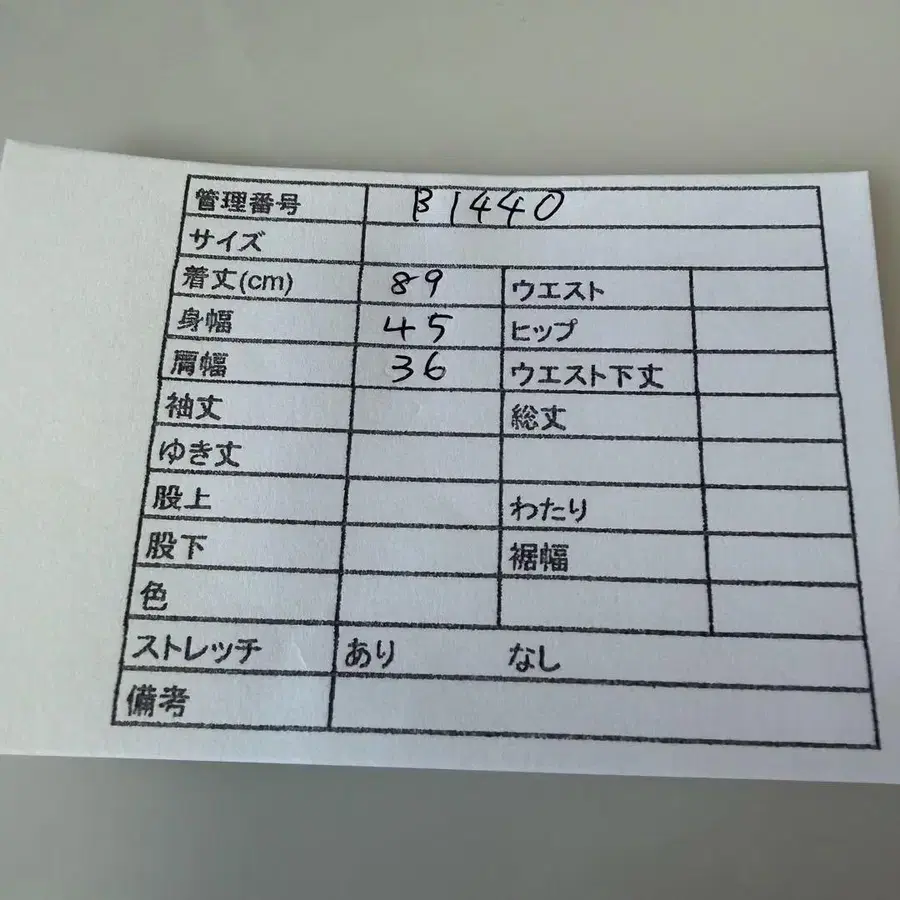 管理番号 B1440
サイズ
着丈(cm) 89 ウエスト
身幅 45 ヒップ
肩幅 36 ウエスト下丈
袖丈 総丈
ゆき丈
股上 わたり
股下 裾幅
色
ストレッチ あり なし
備考